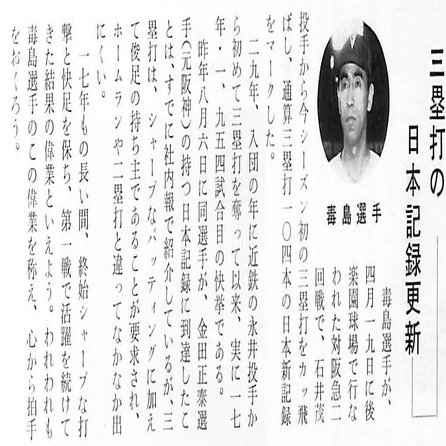 三塁打の
日本記録更新
毒島選手
毒島選手が、
四月一九日に後
楽園球場で行な
われた対阪急二
回戦で、石井茂
投手から今シーズン初の三塁打をカッ飛
ばし、通算三塁打一〇四本の日本新記録
をマークした。
二九年、入団の年に近鉄の永井投手か
ら初めて三塁打を奪って以来、実に一七
年・一、九五四試合目の快挙である。
昨年八月六日に同選手が、金田正泰選
手（元阪神）の持つ日本記録に到達したこ
とは、すでに社内報で紹介しているが、三
塁打は、シャープなバッティングに加え
て俊足の持ち主であることが要求され、
ホームランや二塁打と違ってなかなか出
にくい。
一七年もの長い間、終始シャープな打
撃と快足を保ち、第一戦で活躍を続けて
きた結果の偉業といえよう。われわれも
毒島選手のこの偉業を称え、心から拍手
をおくろう。